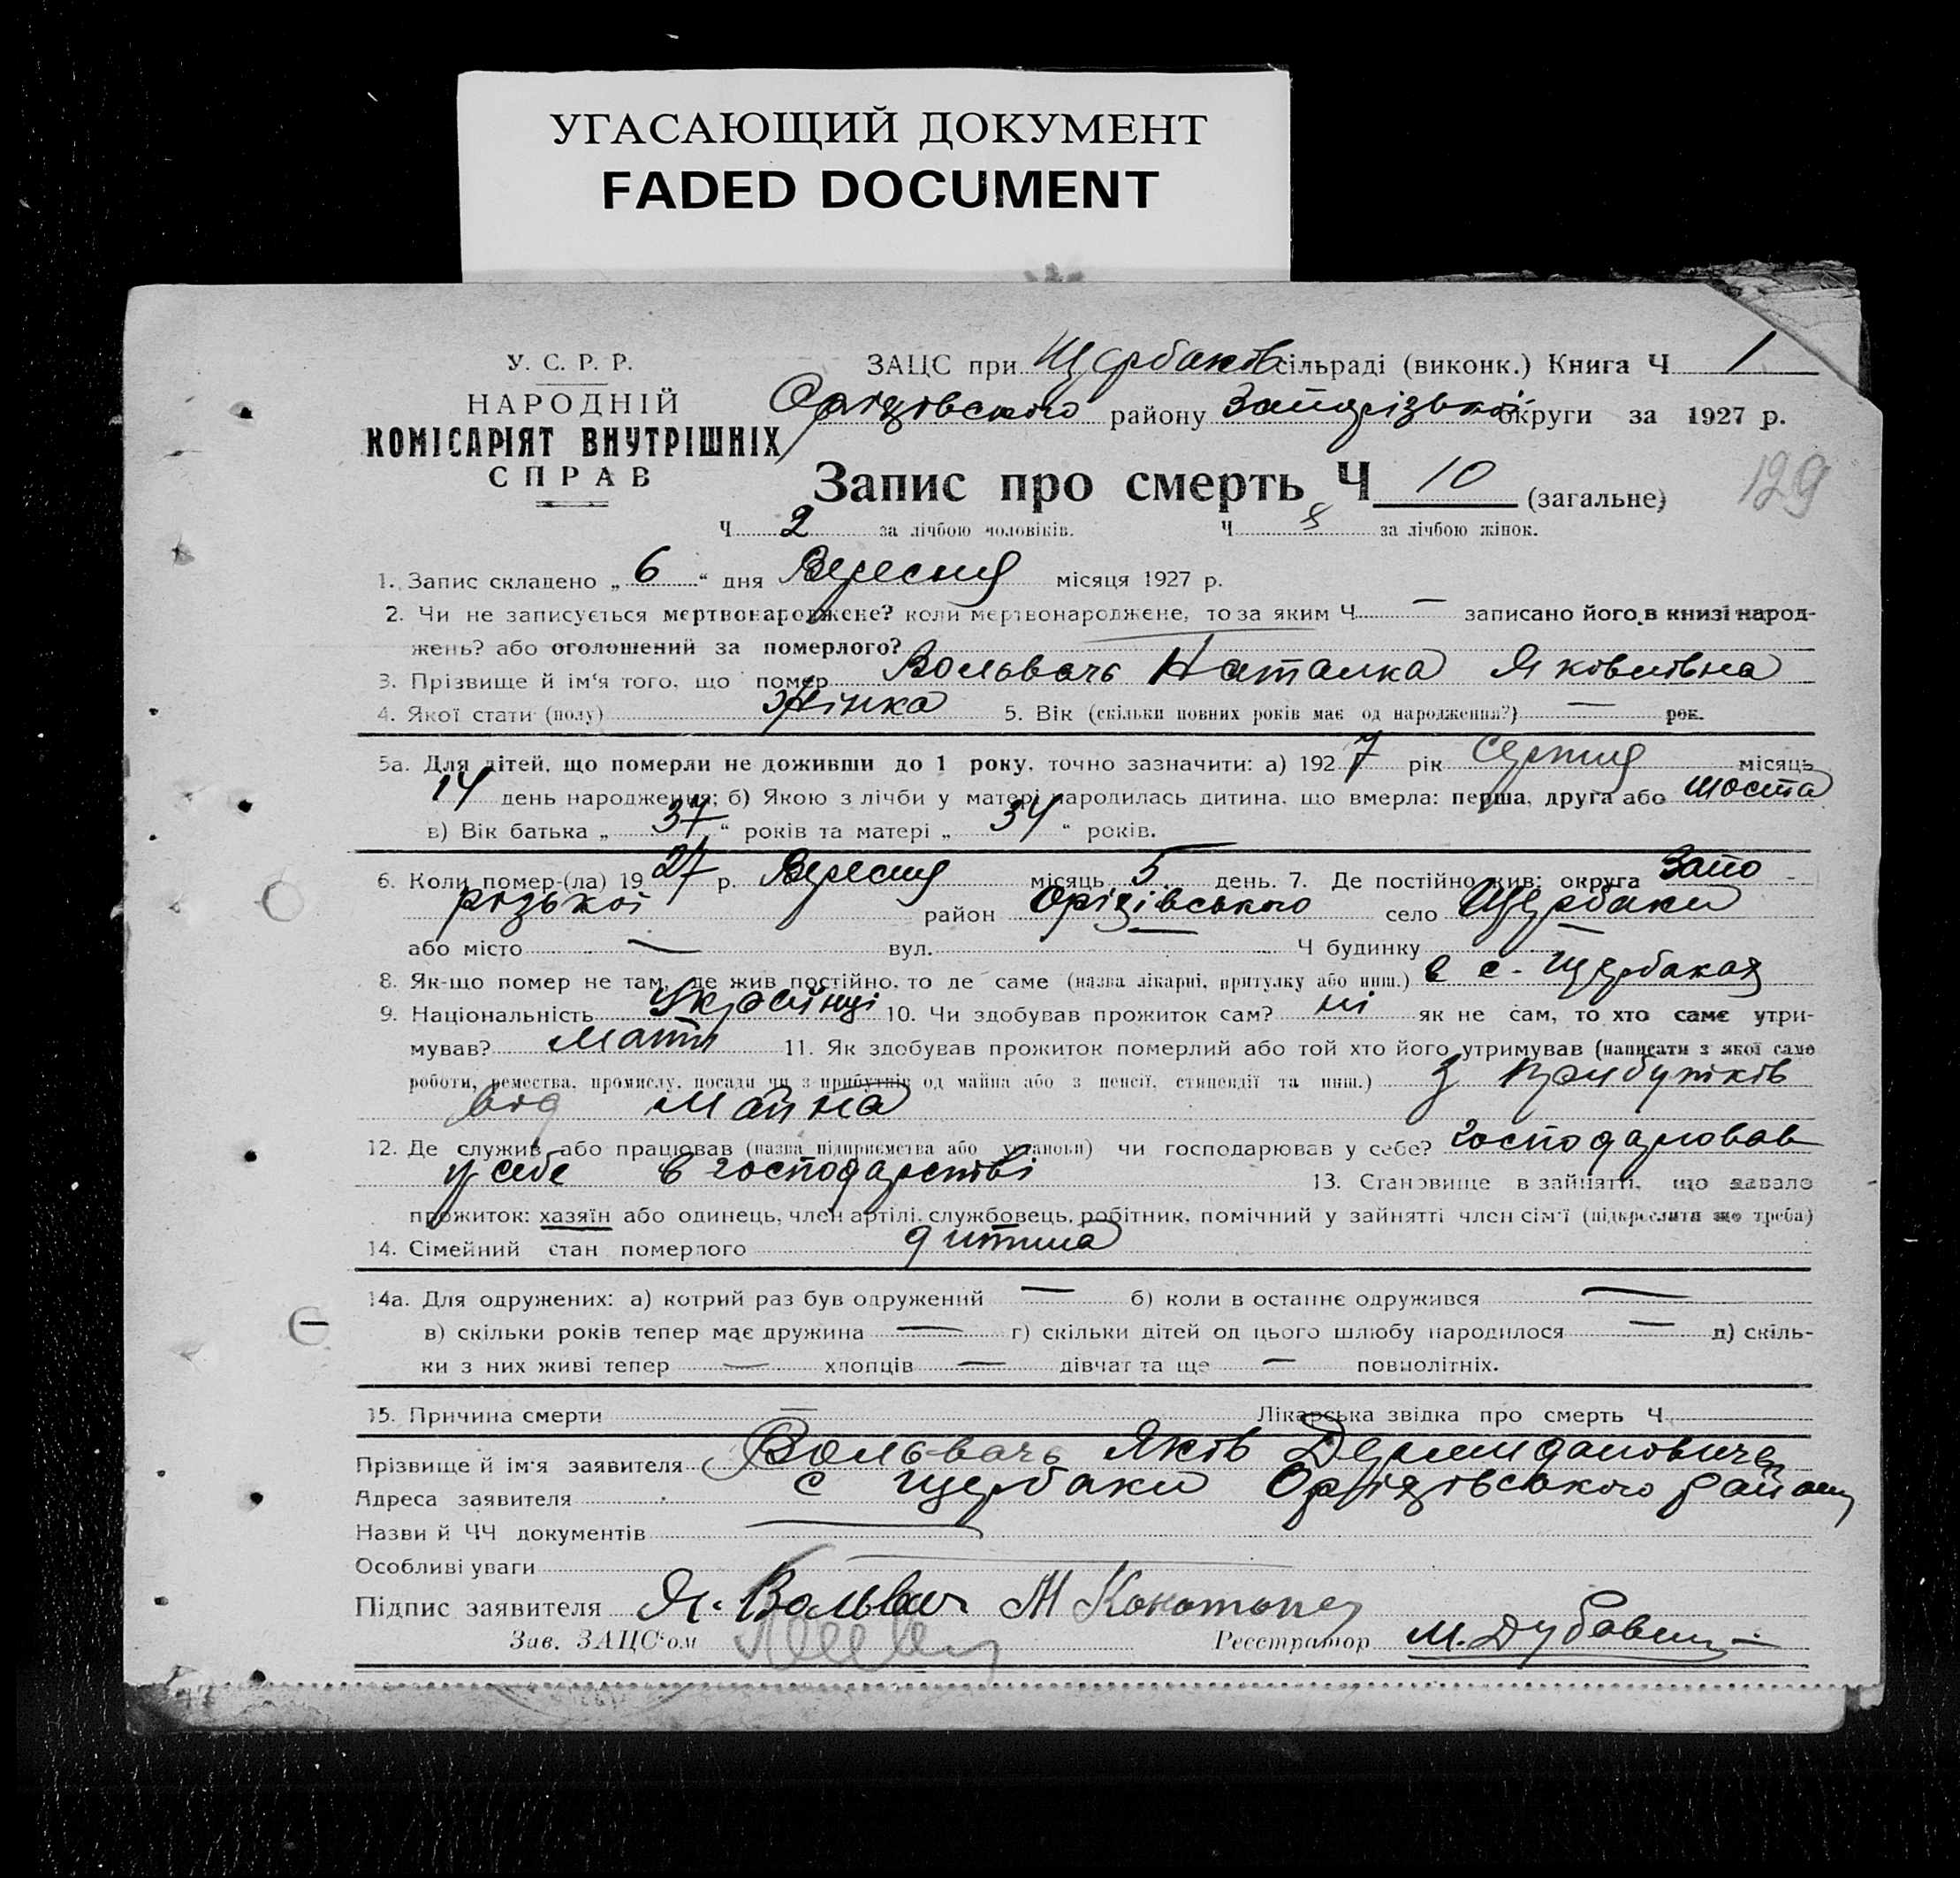 УГАСАЮЩИЙ ДОКУМЕНТ
FADED DOCUMENT
У. С. Р. Р.
НАРОДНІЙ
КОМІСАРІЯТ ВНУТРІШНІХ
СПРАВ
ЗАЦС при Щербаків сільраді (виконк.) Книга Ч 1
Оріхівського району Запорізької округи за 1927 р.
Запис про смерть Ч 10 (загальне)
129
Ч 2 за лічбою чоловіків. Ч 8 за лічбою жінок.
1. Запис складено „ 6 “ дня Вересня місяця 1927 р.
2. Чи не записується мертвонароджене? коли мертвонароджене, то за яким Ч — записано його в книзі народ-
жень? або оголошений за померлого?
3. Прізвище й ім'я того, що помер Вольвачь Наталка Яковлівна
4. Якої стати (полу) Жінка 5. Вік (скільки повних років має од народження?) — рок.
5а. Для дітей, що померли не доживши до 1 року, точно зазначити: а) 1927 рік Серпня місяць
14 день народження; б) Якою з лічби у матері народилась дитина, що вмерла: перша, друга або шоста
в) Вік батька „ 37 “ років та матері „ 34 “ років.
6. Коли помер-(ла) 1927 р. Вересня місяць 5 день. 7. Де постійно жив: округа Запо-
різької район Оріхівського село Щербаки
або місто — вул. — Ч будинку —
8. Як-що помер не там, де жив постійно, то де саме (назва лікарні, притулку або инш.) в с. Щербаках
9. Національність Українці 10. Чи здобував прожиток сам? ні як не сам, то хто саме утри-
мував? Мати 11. Як здобував прожиток померлий або той хто його утримував (написати з якої саме
роботи, ремества, промислу, посади чи з прибутків од майна або з пенсії, стипендії та инш.) З прибутків
від майна
12. Де служив або працював (назва підприємства або установи) чи господарював у себе? господарював
у себе в господарстві 13. Становище в зайнятті, що давало
прожиток: хазяїн або одинець, член артілі, службовець, робітник, помічний у зайнятті член сім'ї (підкреслити що треба)
14. Сімейний стан померлого дитина
14а. Для одружених: а) котрий раз був одружений — б) коли в останнє одружився —
в) скільки років тепер має дружина — г) скільки дітей од цього шлюбу народилося — д) скіль-
ки з них живі тепер — хлопців — дівчат та ще — повнолітніх.
15. Причина смерти — Лікарська звідка про смерть Ч
Прізвище й ім'я заявителя Вольвачь Яків
Адреса заявителя с Щербаки Оріхівського району
Назви й ЧЧ документів —
Особливі уваги —
Підпис заявителя Я. Вольвач М Конотопец
Зав. ЗАЦС'ом Реєстратор